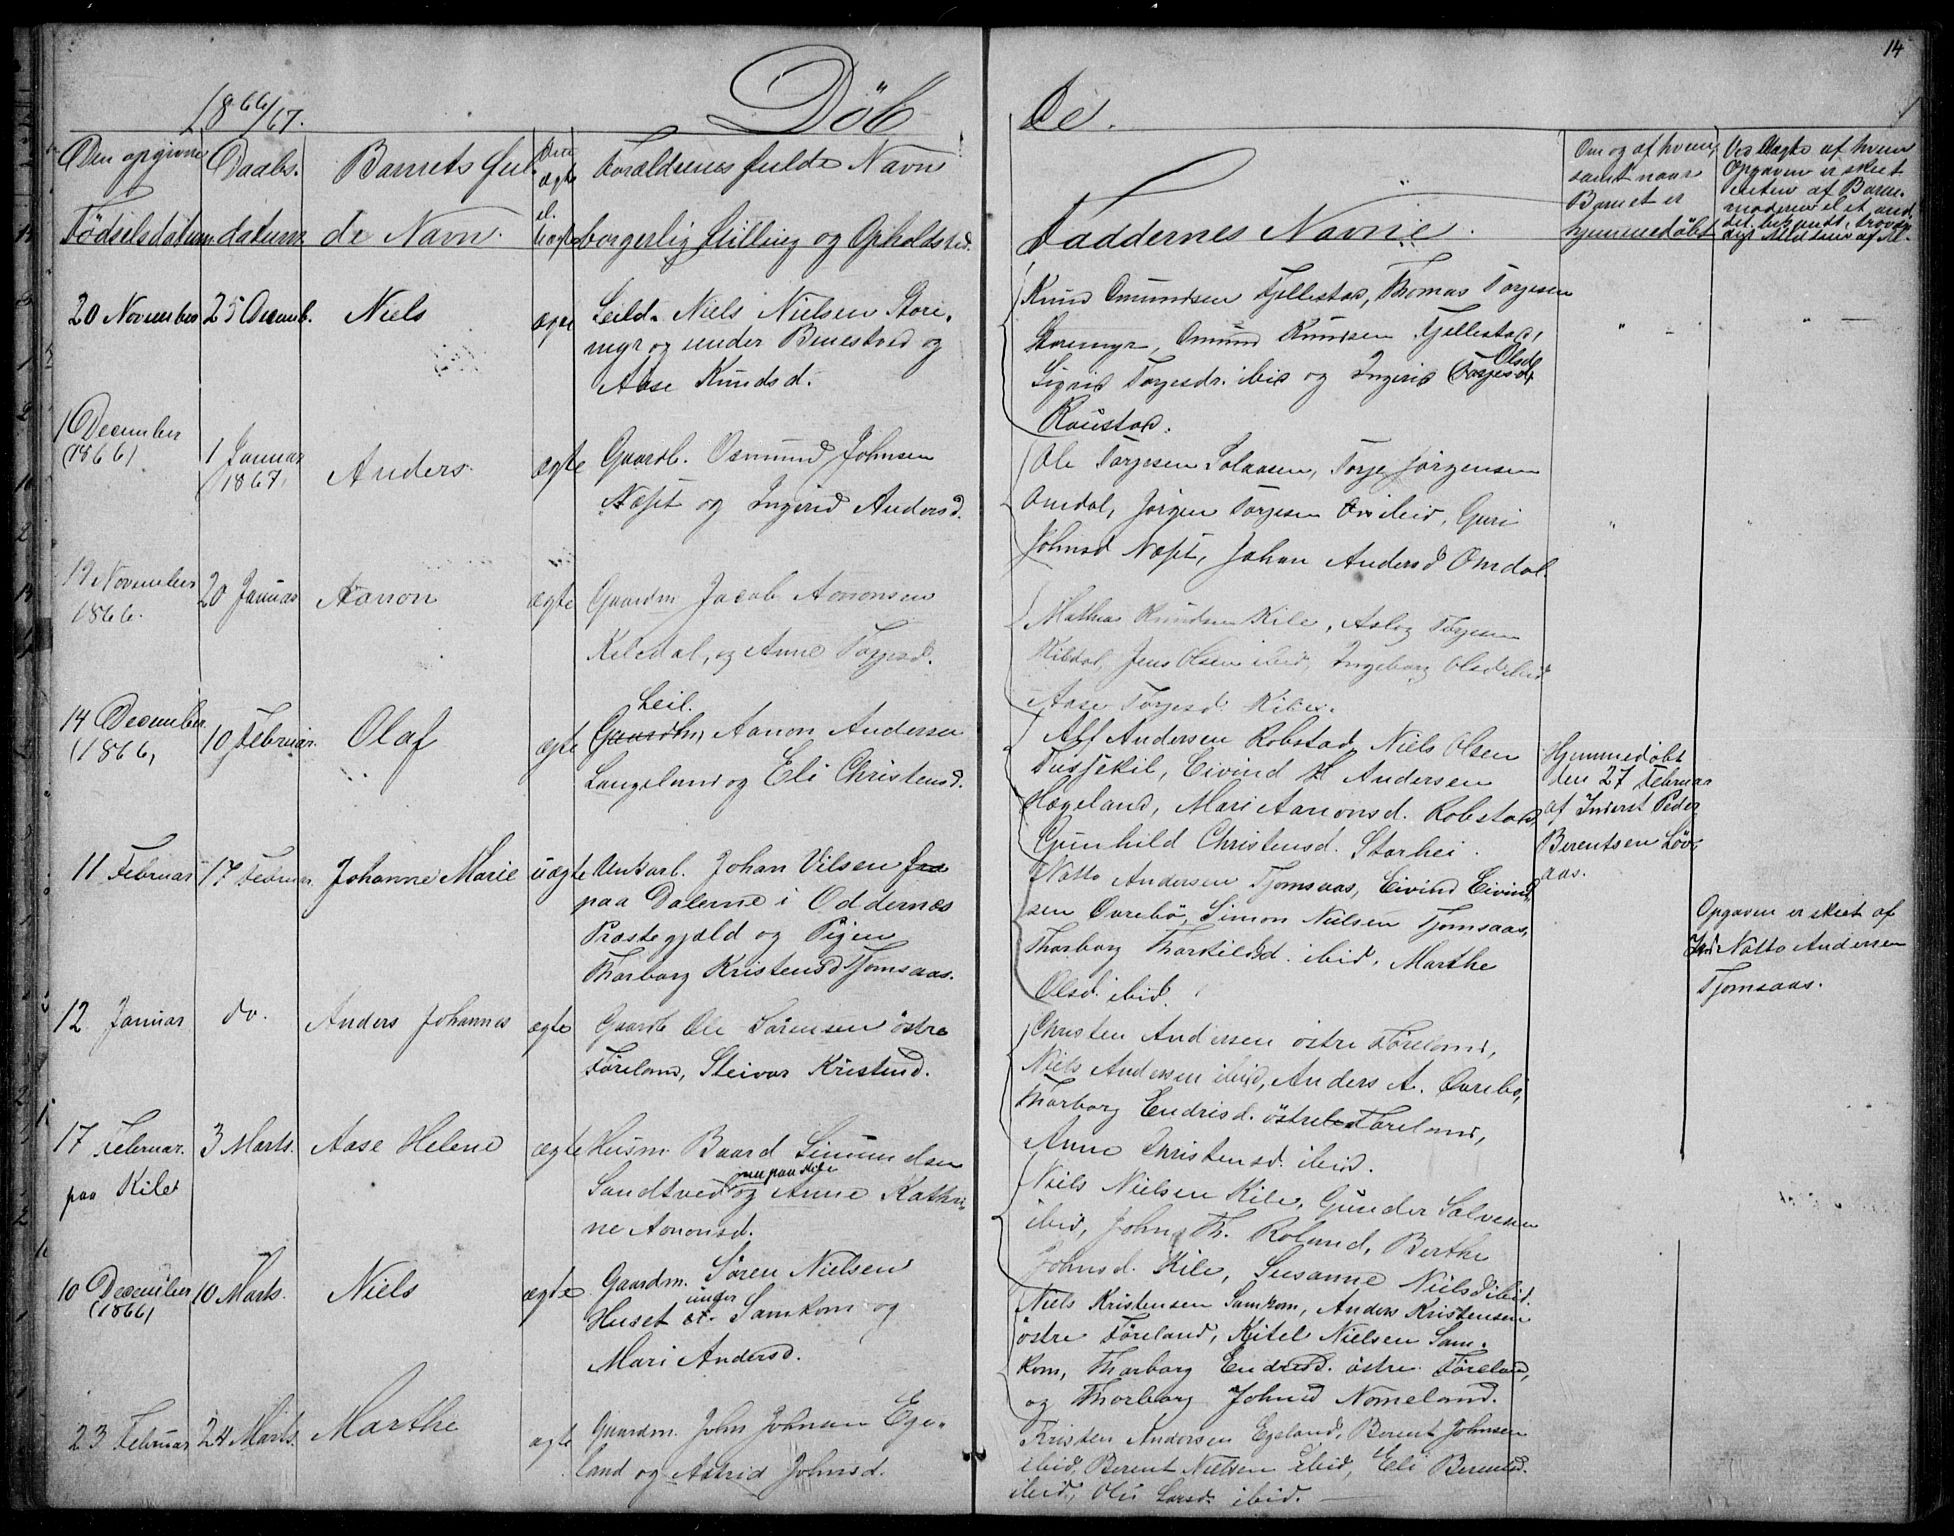 14
1866/67.
Döb
De.
Den opgivne
Födselsdatum
Daabs.
datum
Barnets ful.
de Navn.
Om
ægte
el.
uægte
Forældrenes fulde Navn
borgerlig Stilling og Opholdsted.
Faddernes Navne.
Om og af hvem,
samt naar
Barnet er
hjemmedöbt
Ved Uægte af hvem
Opgaven er skeet
enten af Barne-
moderen el. et and
20 November
25 Decemb.
Niels
ægte
Leild. Niels Nielsen Store-
myr og under Benestved og
Aase Knudsd.
Knud Omundsen Fjellestad, Thomas Torjesen
Storemyr, Omund Knudsen Fjellestad,
Sigrid Torjesdr. ibid og Ingerid Torjesd.
Olsd.
Raustad.
1 December
(1866)
1 Januar
(1867)
Anders
ægte
Gaardb. Osmund Johnsen
Næset og Ingerid Andersd.
Ole Torjesen Solaasen, Torje Jörgensen
Omdal, Jörgen Torjesen ibid, Guri
Johnsd Næset, Johan Andersd Omdal.
19 November
1866.
20 Januar
Aanon
ægte
Gaardm. Jacob Aanonsen
Kiledal, og Anne Torjesd.
Mathias Knudsen Kile, Aslog Torjesen
Kiledal, Jens Olsen ibid, Ingeborg Olsd ibid
Aase Torjesd. Kile.
14 December
(1866,
10 Februar.
Olaf
ægte
Leil.
Gaardm, Aanon Andersen
Langeland og Eli Christensd.
Alf Andersen Robstad, Niels Olsen
Tusjekil, Eivind Andersen
Hægeland, Mari Aanonsd. Robstad
Gunhild Christensd. Storhei.
Hjemmedöbt
den 27 Februar
af Inderst Peder
Berentsen Löv-
aas.
11 Februar
17 Februar.
Johanne Marie
uægte
Unkarl. Johan Vilsen fra
paa Dalerne i Oddernes
Præstegjæld og Pigen
Thorborg Kristensd Tjomsaas.
Natto Andersen Tjomsaas, Eivind Eivind-
sen Övrebö, Simon Nielsen Tjomsaas,
Thorborg Thorkildsd. ibid, Marthe
Olsd. ibid.
Opgaven er skeet af
Natto Andersen
Tjomsaas.
12 Januar
do.
Anders Johannes
ægte
Gaardb Ole Sörensen östre
Föreland, Steivor Kristensd.
Christen Andersen östre Föreland,
Niels Andersen ibid, Anders A. Övrebö,
Thorborg Endrisd. östre Föreland,
Anne Christensd. ibid.
17 Februar.
paa Kile
3 Marts.
Aase Helene
ægte
Husm. Baard Simundsen
nu paa Kile
Sandtved og Anne Kathri-
ne Aanonsd.
Niels Nielsen Kile, Gunder Salvesen
ibid, John Th. Roland, Berthe
Johnsd. Kile, Susanne Nielsd ibid.
10 December
(1866)
10 Marts.
Niels
ægte
Gaardm. Sören Nielsen
under
Huset Samkom og
Mari Andersd.
Niels Kristensen Samkom, Anders Kristensen
östre Föreland, Kitel Nielsen Sam-
kom, Thorborg Endresd. östre Föreland,
og Thorborg Johnsd Nomeland.
23 Februar
24 Marts.
Marthe
ægte
Gaardm. John Johnsen Ege-
land og Astrid Johnsd.
Kristen Andersen Egeland, Berent Johnsen
ibid, Berent Nielsen ibid, Eli Berentsd.
ibid, Larsd. ibid.